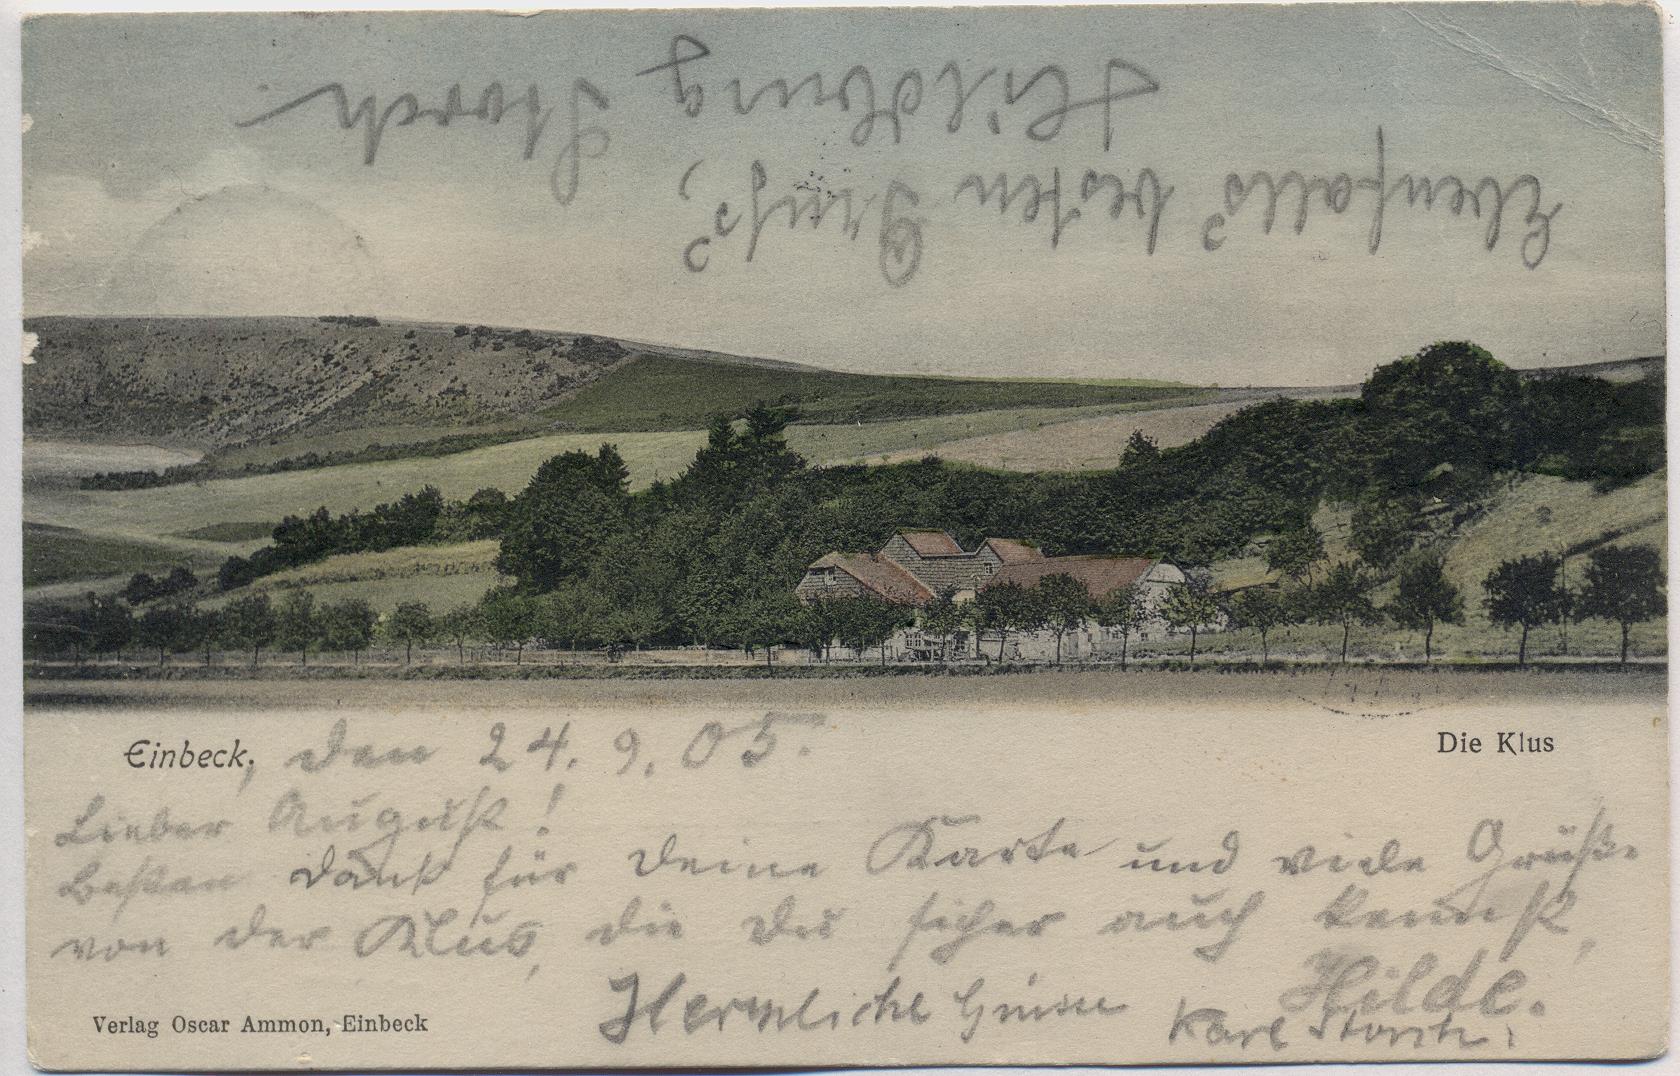 Ebenfalls besten Gruß,
Hildburg Storch
Einbeck, den 24. 9. 05.
Die Klus
Lieber August!
Besten Dank für deine Karte und viele Grüße
von der Klus, die du sicher auch kennst,
Hilde.
Herzliche Grüsse Karl Storch.
Verlag Oscar Ammon, Einbeck